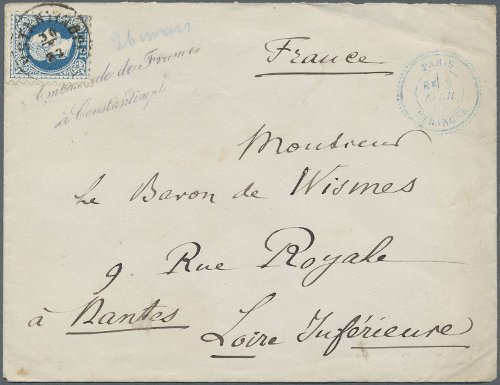 France
Ambassade de France
à Constantinople
PARIS
ETRANGER
Monsieur
Le Baron de Wismes
9. Rue Royale
à Nantes
Loire Inférieure